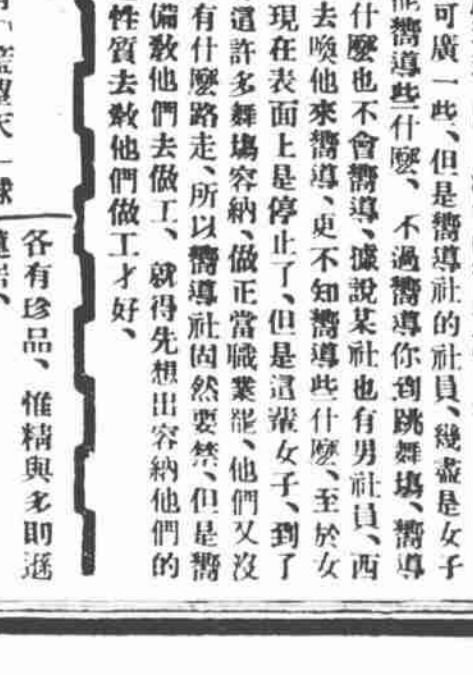 可廣一些、但是嚮導社的社員、幾盡是女子
嚮導些什麼、不過嚮導你到跳舞塲、嚮導
什麼也不會嚮導、據說某社也有男社員、西
去喚他來嚮導、更不知嚮導些什麼、至於女
現在表面上是停止了、但是這輩女子、到了
這許多舞塲容納、做正當職業罷、他們又沒
有什麼路走、所以嚮導社固然要禁、但是嚮
備敎他們去做工、就得先想出容納他們的
性質去敎他們做工才好、
各有珍品、惟精與多則遜